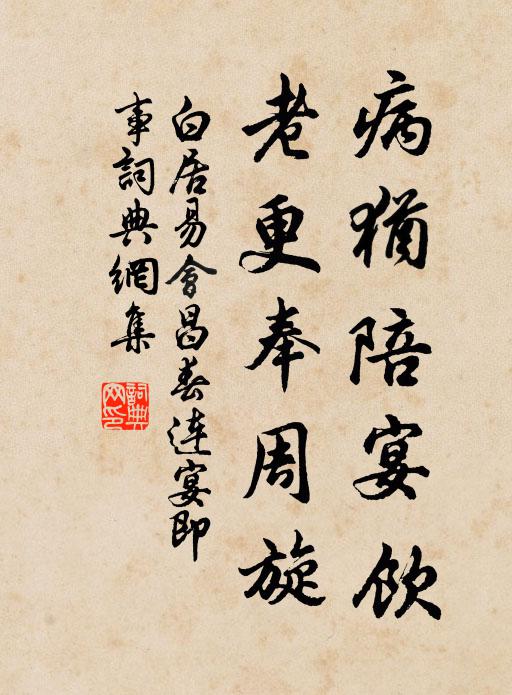 病猶陪宴飲
老更奉周旋
白居易會昌春连宴即
事詞典網集
詞典
网印